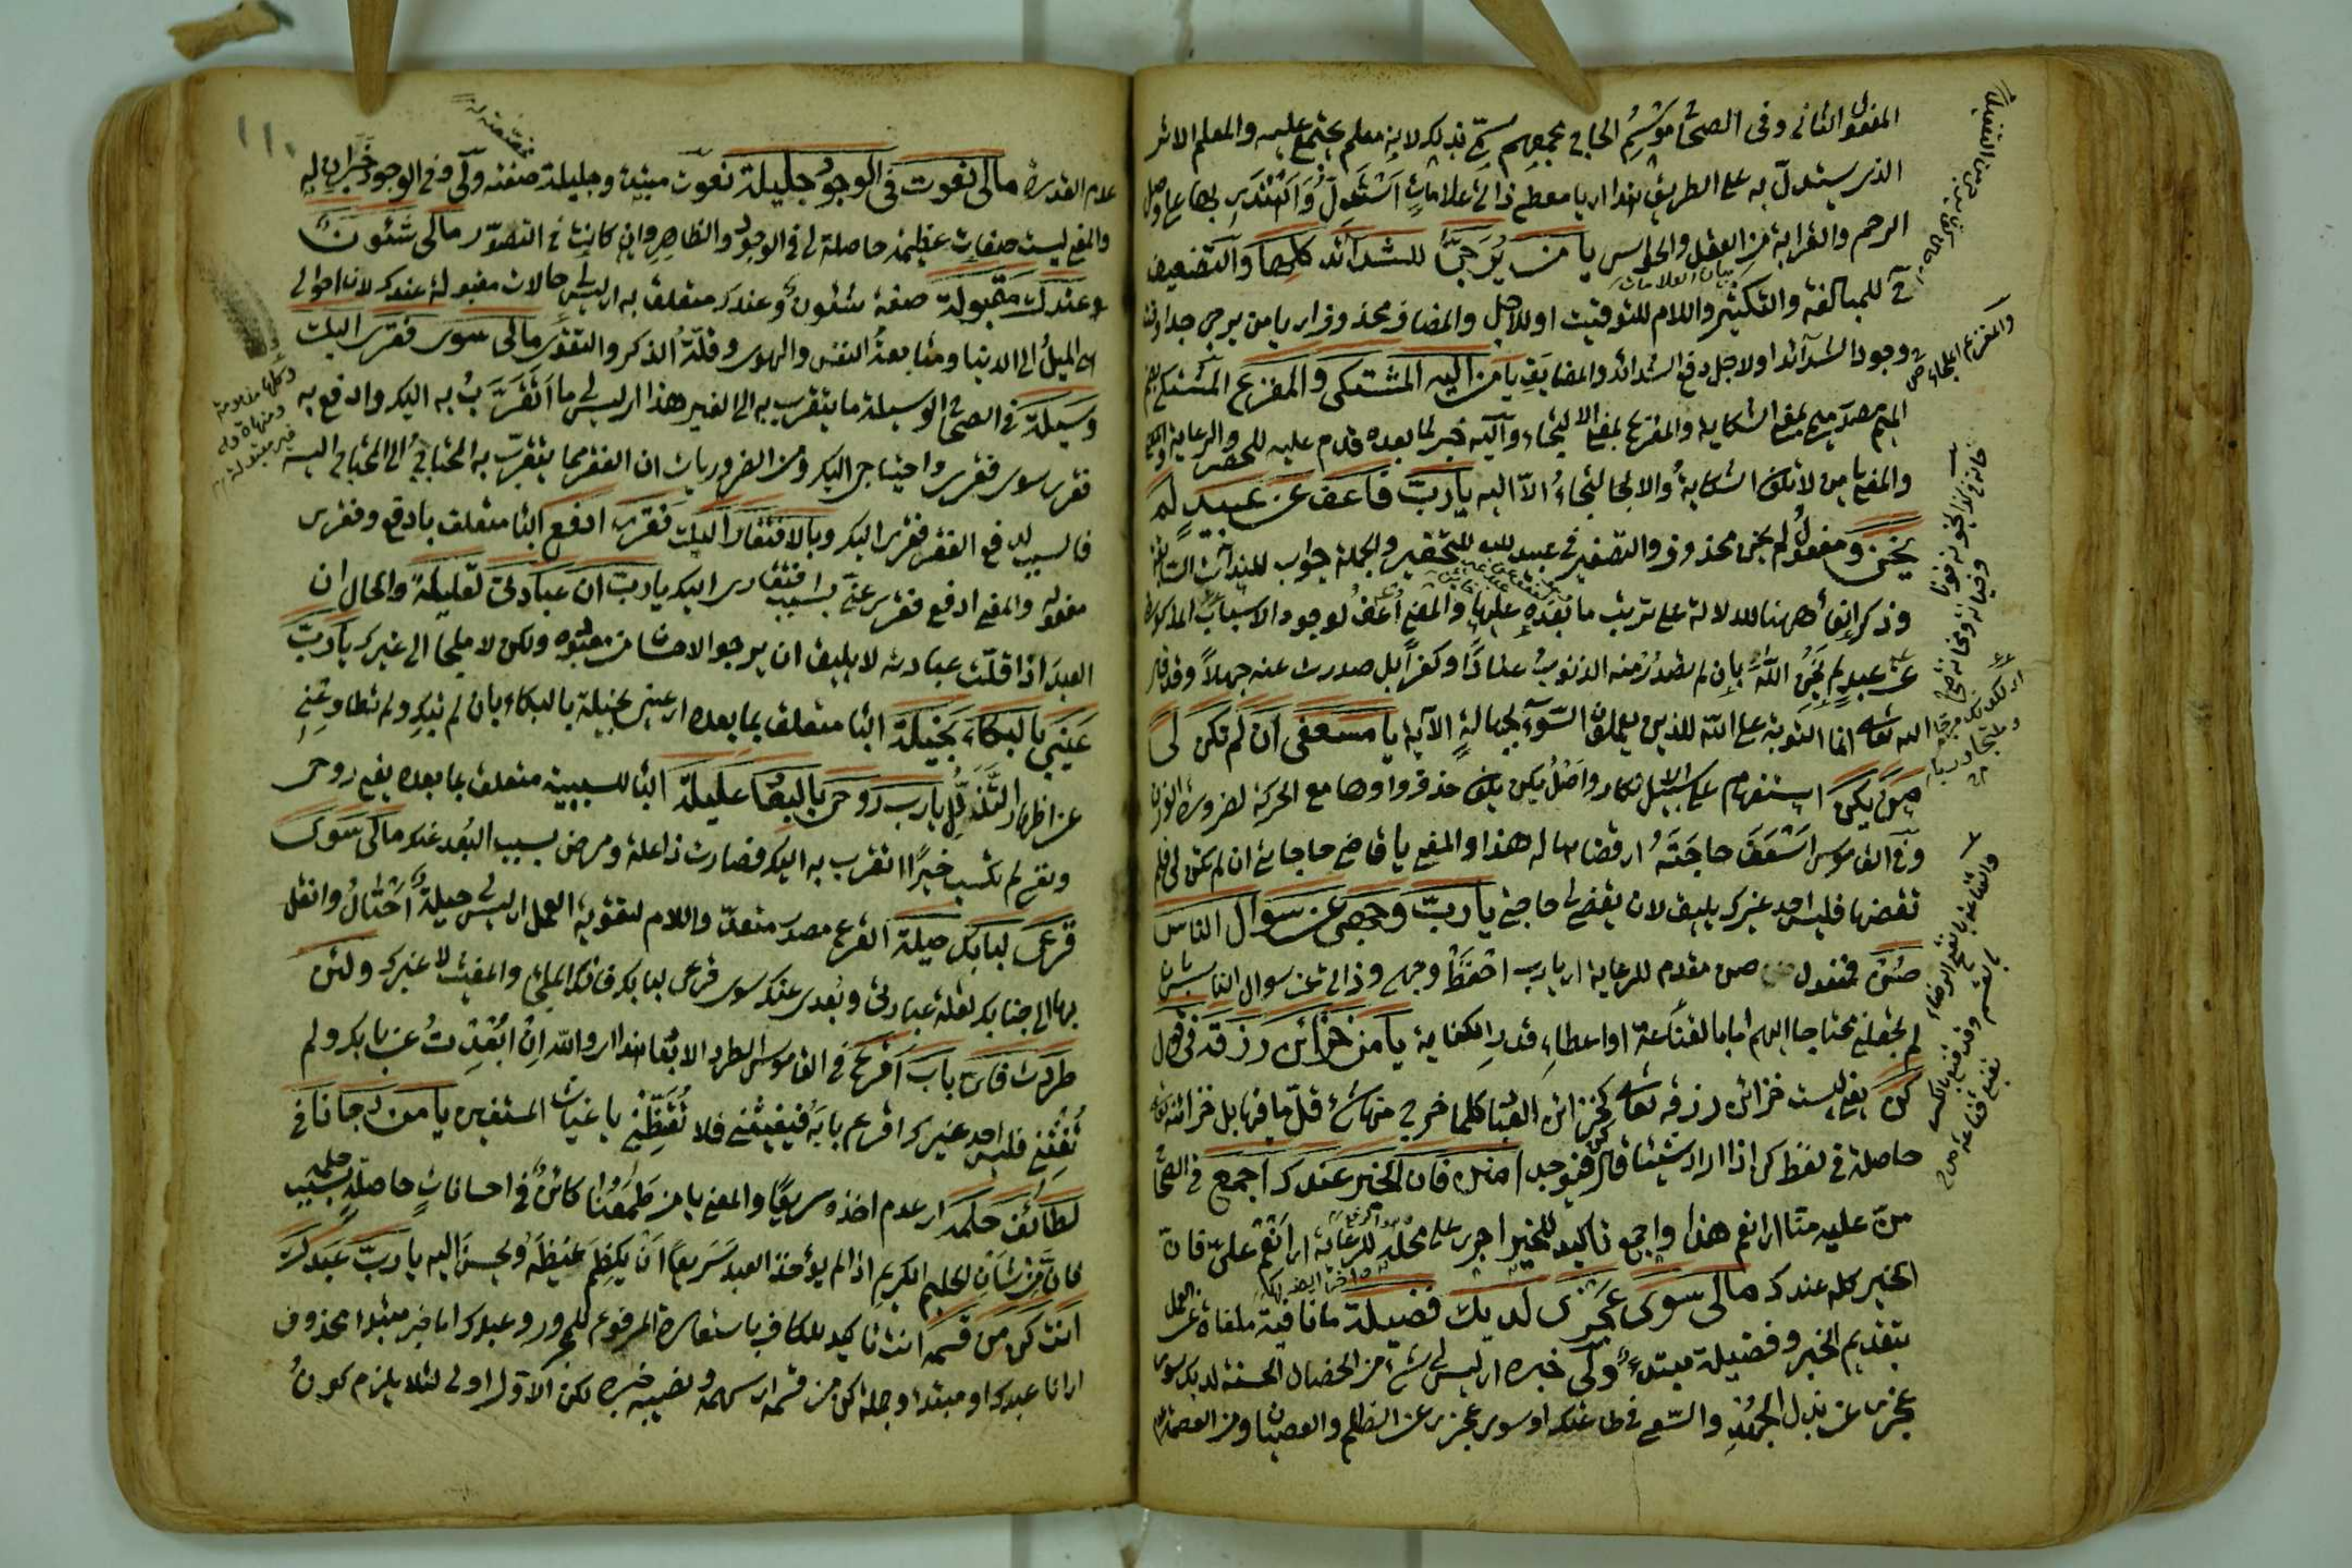 المفعول الثاني وفي الصحاح موسم الحاج مجمعهم سمي بذلك لانه معلم يجتمع عليه والمعلم الاثر
الذي يستدل به على الطريق هذا اي يا معطي ذاتي علامات استدل واهتدي بها على وصل
الرحم والقرابة من العقل والحواس يا من يرجى للشدائد كلها والتضعيف
للمبالغة والتكثير واللام للتوقيت او للاجل والمضاف محذوف اي يا من يرجى
وجود الشدائد او لاجل دفع الشدائد والمضايق يا من اليه المشتكى والمفزع المشتكى بضم
الميم مصدر ميمي بمعنى الشكاية والمفزع بمعنى الالتجاء واليه خبر لما بعده قدم عليه للحصر والرعاية
والمعنى يا من لا تكون الشكاية والالتجاء الا اليه يا رب فاعف عن عبيد لم
يخن ومفعول لم يخن محذوف والتصغير في عبيد للتحقير والجملة جواب للنداءات السابقة
وذكر ههنا للدلالة على ترتيب ما بعده عليها والمعنى اعف لوجود الاسباب المذكورة
عن عبد لم يخن الله بان لم تصدر منه الذنوب عنادا وكفرا بل صدرت عنه جهلا وقد قال
الله تعالى انما التوبة على الله للذين يعملون السوء بجهالة الآية يا مسعفي ان لم تكن لي
من يكن استفهام على سبيل الانكار واصل يكن يكون حذف واوها مع الحركة لضرورة الوزن
وفي القاموس اسعف حاجته اي قضاها له هذا والمعنى يا قاضي حاجاتي ان لم تكن لي فلم
تقضها فليس احد غيرك يليق لان يقضي لي حاجتي يا رب وجهي عن سوال الناس
صن فمفعول صن مقدم للرعاية اي يا رب احفظ وجهي وذاتي عن سوال الناس بان
لم تجعلني محتاجا اليهم اما بالقناعة او اعطاء قدر الكفاية يا من خزائن رزقه في قول
كن يعني ليست خزائن رزقه تعالى كخزائن العباد كلما خرج منها شيء قل ما فيها بل خزائنه تعالى
حاصلة في لفظ كن اذا اراد شيئا قال كن فيوجد امنن فان الخير عندك اجمع في الصحاح
من عليه منا اي انعم هذا واجمع تاكيد للخير اجري على محله للرعاية اي انعم علي فان
الخير كله عندك مالي سوى عجزي لديك فضيلة ما نافية ملغاة عن العمل
بتقديم الخبر وفضيلة مبتدء ولي خبره اي ليس لي شيء من الخصال الحسنة لديك سوى
عجزي عن بذل الجهد والسعي في طاعتك او سوى عجزي عن الظلم والعصيان ومن العصمة
عدم القدرة مالي نعوت في الوجود جليلة نعوت مبتدء وجليلة صفته ولي وفي الوجود خبران له
والمعنى ليست صفات عظيمة حاصلة لي في الوجود والظاهر وان كانت في التصور مالي شئون
وعندك مقبولة صفة شئون وعندك متعلق به اي ليس لي حالات مقبولة عندك لان احوالي
هي الميل الى الدنيا ومتابعة النفس والهوى وقلة الذكر والتقوى مالي سوى فقري اليك
وسيلة في الصحاح الوسيلة ما يتقرب به الى الغير هذا اي ليس لي ما اتقرب به اليك وادفع به
فقري سوى فقري واحتياجي اليك ومن الضروريات ان الفقر مما يتقرب به المحتاج الى المحتاج اليه
فالسبب لدفع الفقر فقري اليك وبالافتقار اليك فقري ادفع البا متعلق بادفع وفقري
مفعوله والمعنى ادفع فقري عني بسبب افتقاري اليك يا رب ان عبادتي لقليلة والحال ان
العبد اذا قلت عبادته لا يليق ان يرجو الاحسان من معبوده ولكن لا ملجا الى غيرك يا رب
عيني بالبكاء بخيلة البا متعلق بما بعده اي عيني بخيلة بالبكاء بان لم تبك ولم تطاوعني
عن اظهار التذلل يا رب روحي بالبعاد عليلة البا للسببية متعلق بما بعده يعني روحي
ونفسي لم تكتسب خيرا اتقرب به اليك فصارت ذا علة ومرض بسبب البعد عنك مالي سوى
قرعي لبابك حيلة القرع مصدر متعد واللام لتقوية العمل اي ليس لي حيلة احتال وانتقل
بها الى جنابك لقلة عبادتي وبعدي عنك سوى قرعي لبابك فانك الملجئ والمغيث لا غيرك ولئن
طردت فاي باب اقرع في القاموس الطرد الابعاد هذا اي والله ان ابعدت عن بابك ولم
تغثني فليس احد غيرك اقرع بابه فيغيثني فلا تقنطني يا غياث المستغيثين يا من رجانا في
لطائف حلمه اي عدم اخذه سريعا والمعنى يا من طمعنا كائن في احسانات حاصلة بسبب حلمه
فان من شان الحليم الكريم اذا لم يؤخذ العبد سريعا ان يكظم غيظه ويحسن اليه يا رب عبدك
انت كن من قسمه انت تاكيد للكاف باستعارة المرفوع للمجرور وعبدك اما خبر مبتدا محذوف
اي انا عبدك او مبتدا وجملة كن من قسمه اي سهمه ونصيبه خبره لكن الاول اولى لئلا يلزم كون